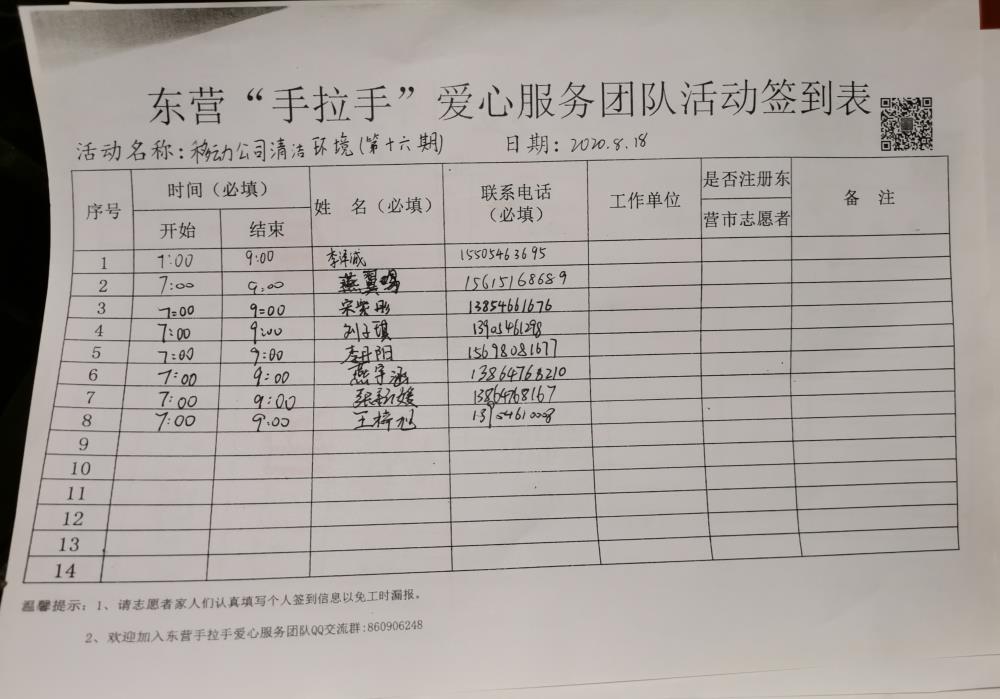 东营“手拉手”爱心服务团队活动签到表
活动名称：移动公司清洁环境(第十六期) 日期：2020.8.18
序号 时间（必填） 姓 名（必填） 联系电话（必填） 工作单位 是否注册东营市志愿者 备 注
开始 结束
1 7:00 9:00 15505463695
2 7:00 9:00 燕翼 15615168689
3 7:00 9:00 宋紫彤 13854661676
4 7:00 9:00 刘子琪 13905461298
5 7:00 9:00 李丹阳 15698081677
6 7:00 9:00 燕宇涵 13864768210
7 7:00 9:00 张新媛 13864768167
8 7:00 9:00 王梓旭 13954610008
9
10
11
12
13
14
温馨提示：1、请志愿者家人们认真填写个人签到信息以免工时漏报。
2、欢迎加入东营手拉手爱心服务团队QQ交流群:860906248